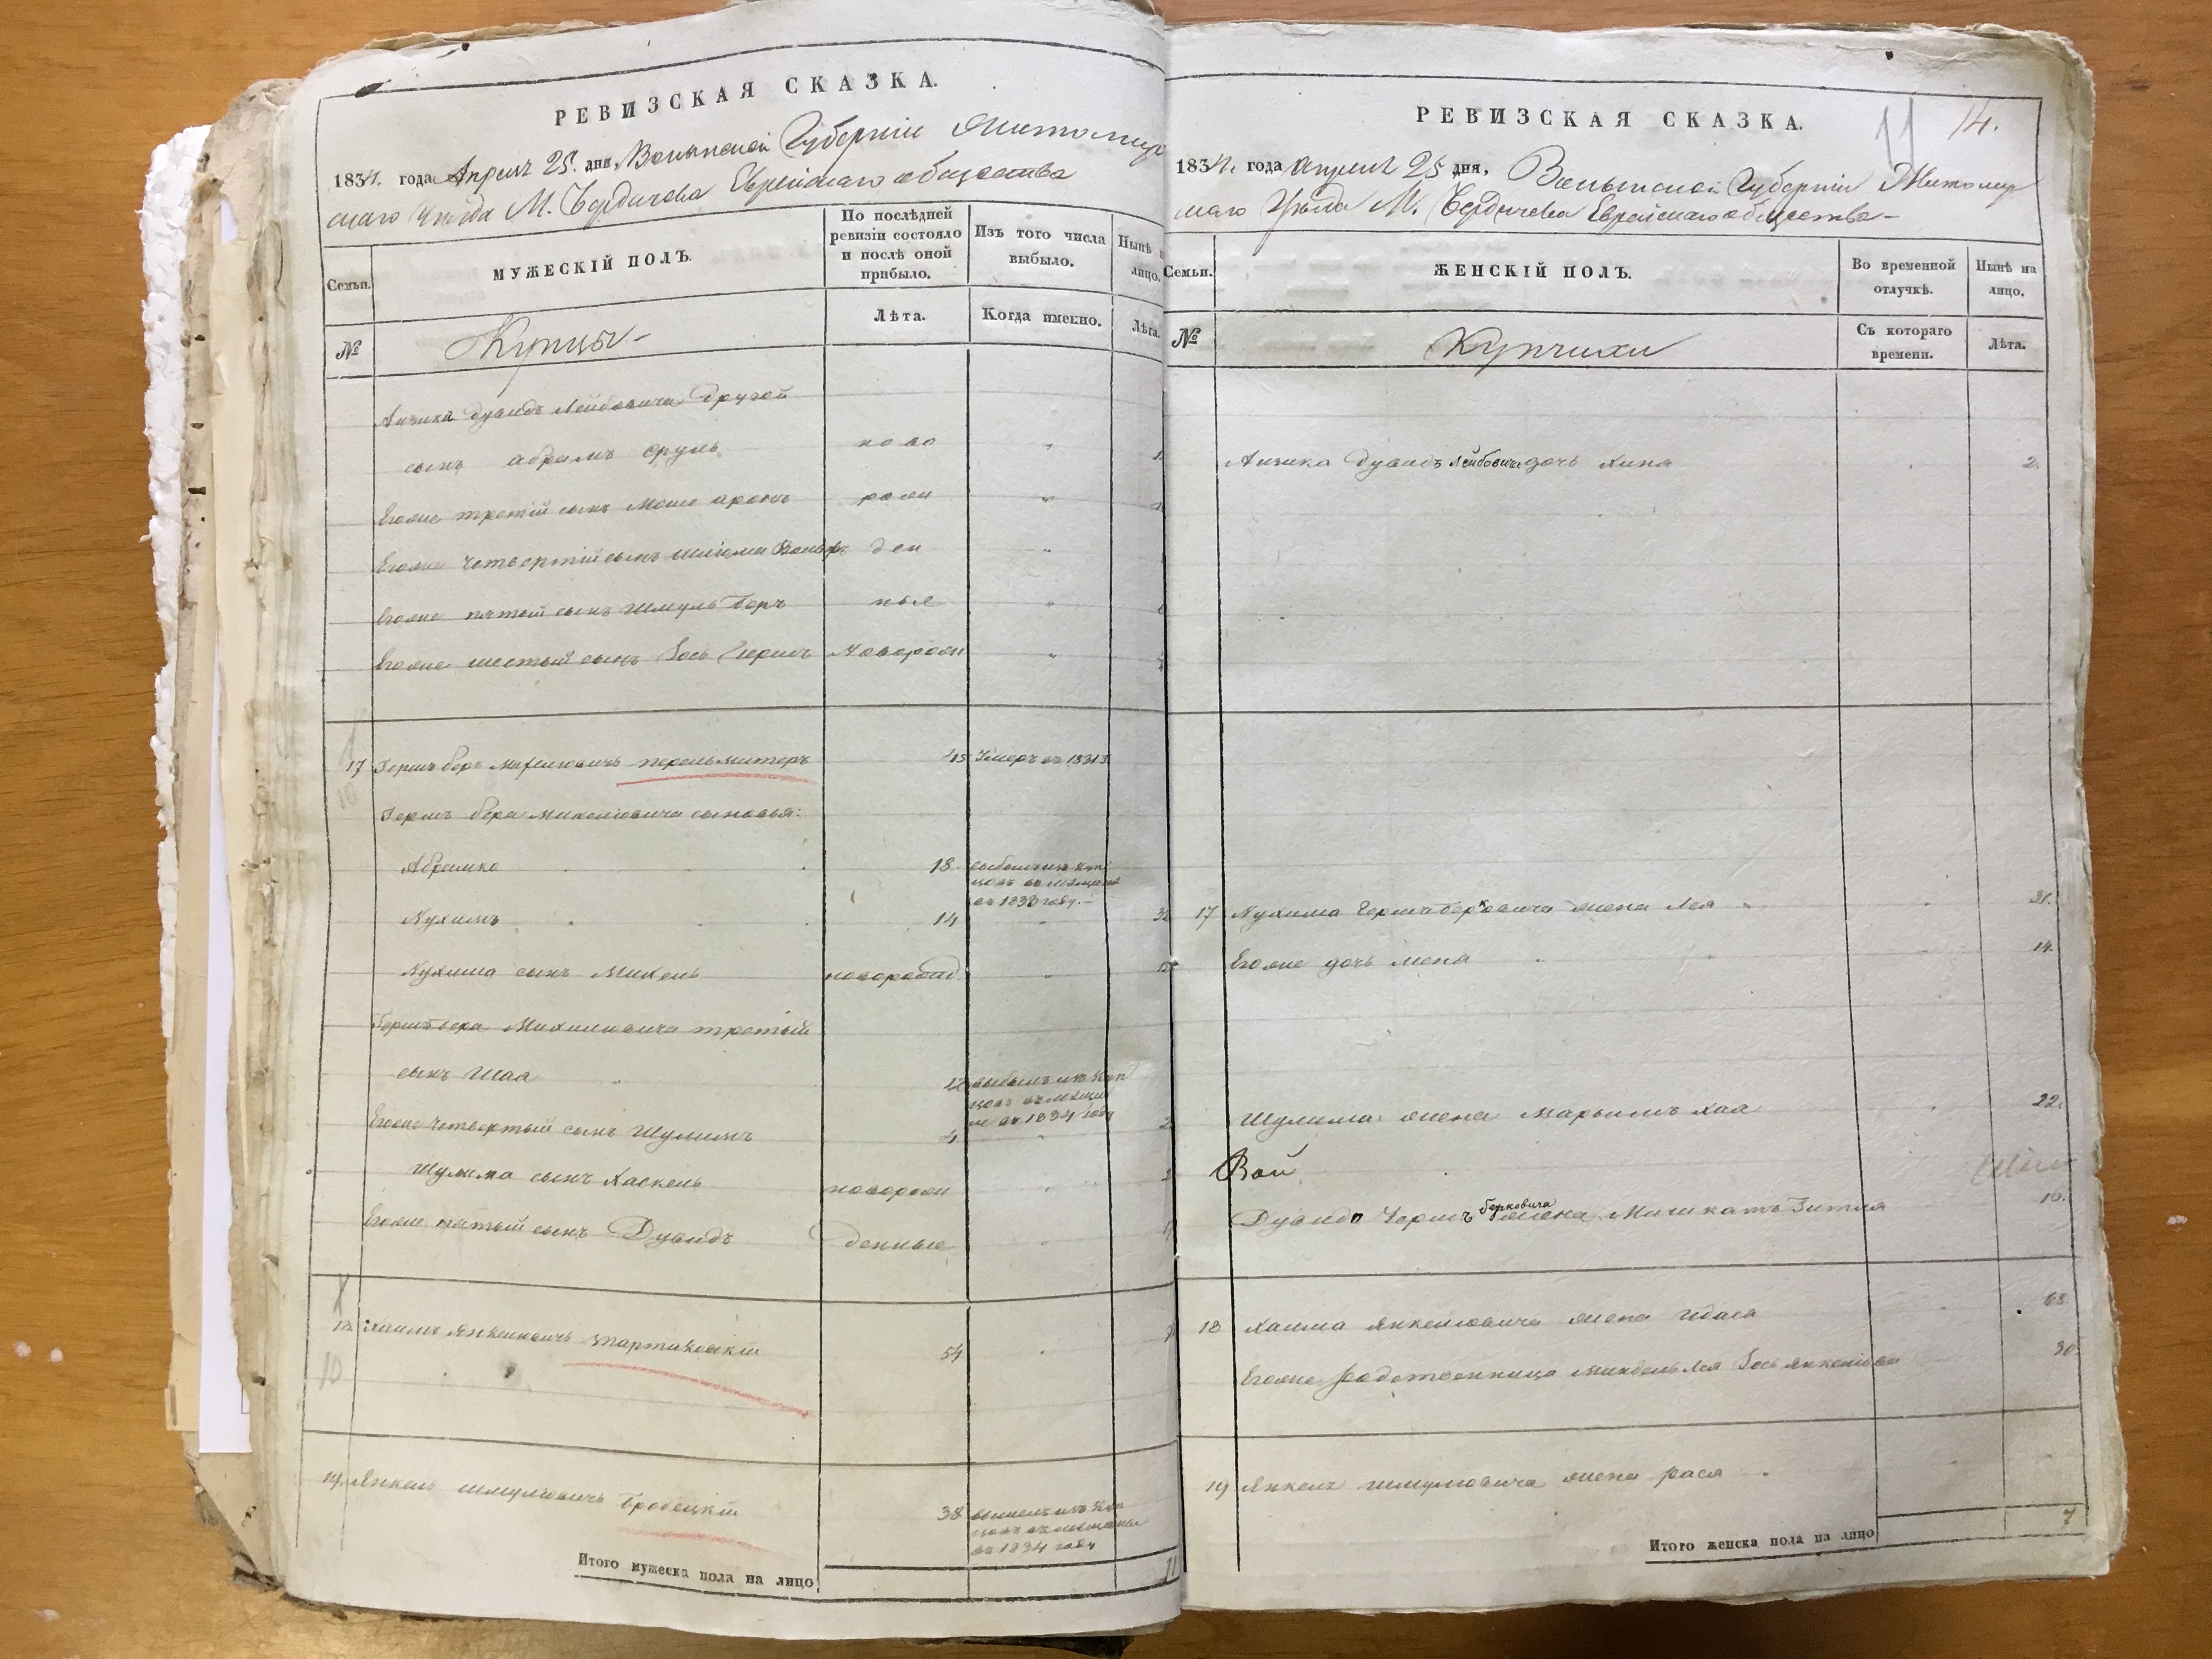 РЕВИЗСКАЯ СКАЗКА.
1834. года Апреля 25. дня, Волынской Губерніи Житомир
скаго уезда М. Бердичева Еврейскаго общества
Семьи.
МУЖЕСКІЙ ПОЛЪ.
По послѣдней ревизіи состояло и послѣ оной прибыло.
Изъ того числа выбыло.
Нынѣ
лицо.
№
Купцы
Лѣта.
Когда именно.
Лѣта.
Айзика Дувидъ Лейбовича другой
сынъ Абрамъ Сруль ново
Егоже третій сынъ Моше Аронъ рожи
Егоже четвертій сынъ Шліома Вольфъ ден
Егоже пятый сынъ Шмуль Беръ ные
Егоже шестый сынъ Іось Гершъ новорож
17 Гершъ Беръ Михелювичъ Перельмитеръ 45 умеръ въ 1831
Гершъ Бера Михелювича сыновья:
Абрамко 18 выбылъ изъ куп
цовъ въ мещане
въ 1833 году.
Нухимъ 14
Нухима сынъ Михель новорожд
Гершъ Бера Михилиовича третый
сынъ Шая 12 выбылъ изъ куп
цовъ въ мещан
не въ 1834 году
Егоже четвертый сынъ Шулимъ 4
Шулима сынъ Хаскель новорож
Егоже пятый сынъ Дувидъ денные
18 Хаимъ Янкелювичъ Тартаковскій 54
19. Янкель Шмулювичъ Бродецкій 38 вышелъ изъ куп
цовъ въ мещаны
въ 1834 году
Итого мужеска пола на лицо 11
РЕВИЗСКАЯ СКАЗКА.
11 14.
1834. года апреля 25 дня, Волынской Губерніи Житомир
скаго Уезда М. Бердичева Еврейскаго общества
Семьи.
ЖЕНСКІЙ ПОЛЪ.
Во временной отлучкѣ.
Нынѣ на лицо.
№
Купчихи
Съ котораго времени.
Лѣта.
Айзика Дувидъ Лейбовича дочь Хина 2.
17 Нухима Гершъ Берковича жена Лея 31.
Егоже дочь Мена 14.
Шулима жена Марьямъ Хая 22.
Вой
Дувида Гершъ Берковича жена Зитля 16.
18 Хаима Янкелювича жена Идаса 68
Егоже родственница Миндель Лея Іось Янкеліова 30
19 Янкель Шмулювича жена Рася
Итого женска пола на лицо 7